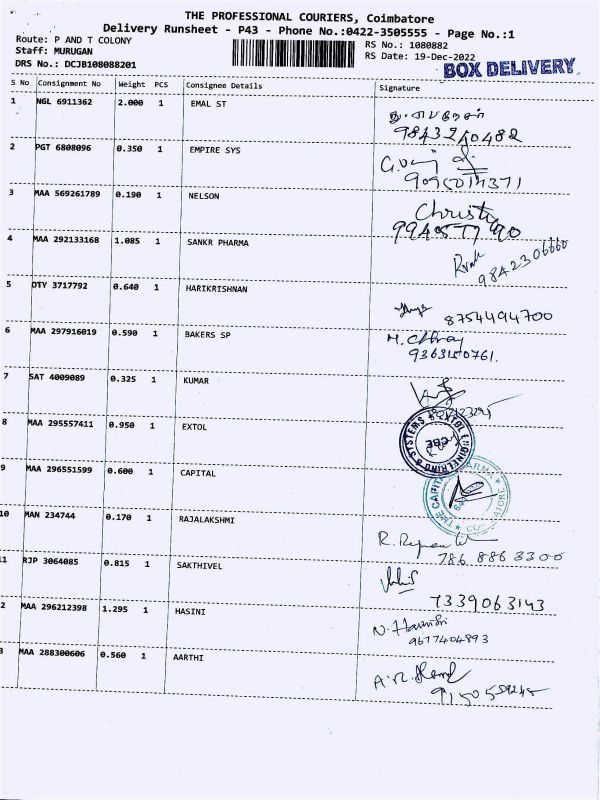 THE PROFESSIONAL COURIERS, Coimbatore
Delivery Runsheet - P43 - Phone No.:0422-3505555 - Page No.:1
Route: P AND T COLONY
Staff: MURUGAN
DRS No.: DCJB108088201
RS No.: 1080882
RS Date: 19-Dec-2022
BOX DELIVERY
S No Consignment No Weight PCS Consignee Details Signature
1 NGL 6911362 2.000 1 EMAL ST
9843240482
2 PGT 6808096 0.350 1 EMPIRE SYS
3 MAA 569261789 0.190 1 NELSON
Christy
4 MAA 292133168 1.085 1 SANKR PHARMA
9842306660
5 OTY 3717792 0.640 1 HARIKRISHNAN
8754494700
6 MAA 297916019 0.590 1 BAKERS SP
9363150761.
7 SAT 4009089 0.325 1 KUMAR
8 MAA 295557411 0.950 1 EXTOL
EXTOL ENGINEERING & SYSTEMS
CBE
9 MAA 296551599 0.600 1 CAPITAL
10 MAN 234744 0.170 1 RAJALAKSHMI
786 886 3300
1 RJP 3064085 0.815 1 SAKTHIVEL
7339063143
2 MAA 296212398 1.295 1 HASINI
9677404893
3 MAA 288300606 0.560 1 AARTHI